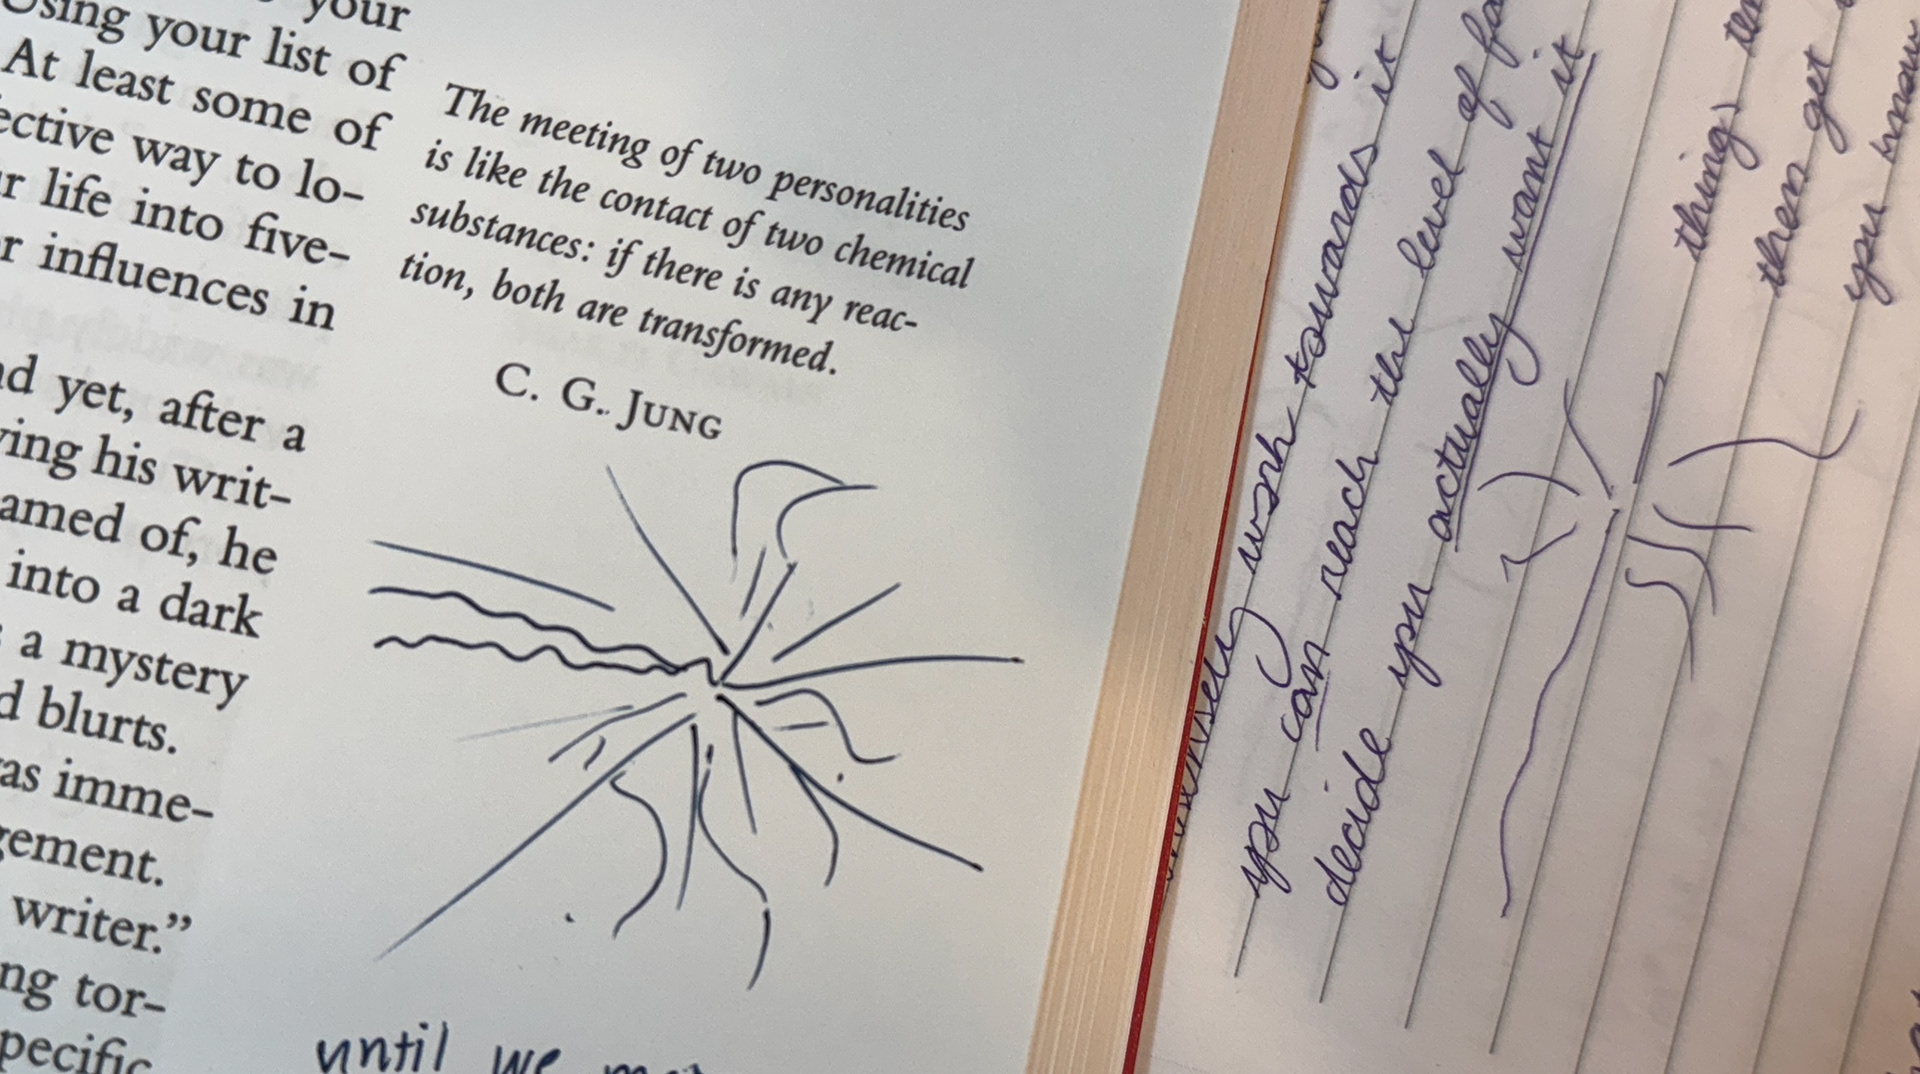 your
Using your list of
At least some of
ective way to lo-
r life into five-
r influences in
nd yet, after a
ying his writ-
amed of, he
into a dark
a mystery
d blurts.
as imme-
gement.
writer.”
ng tor-
pecific
The meeting of two personalities
is like the contact of two chemical
substances: if there is any reac-
tion, both are transformed.
C. G. JUNG
until we
work towards it
you can reach the level of
decide you actually want it
thing)
then get
you know